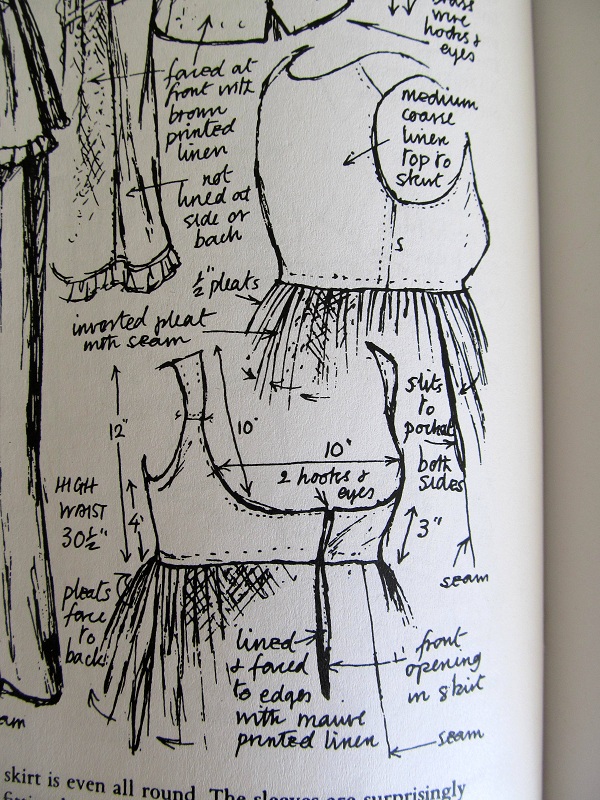 brass
wire
hooks &
eyes
faced at
front with
brown
printed
linen
not
lined at
side or
back
medium
coarse
linen
top to
skirt
S
½" pleats
inverted pleat
with seam
12"
10"
10"
2 hooks &
eyes
slits
to
pocket
both
sides
HIGH
WAIST
30½"
4"
3"
seam
pleats
face
to
back
lined
& faced
to edges
with mauve
printed linen
front
opening
in skirt
seam
skirt is even all round. The sleeves are surprisingly